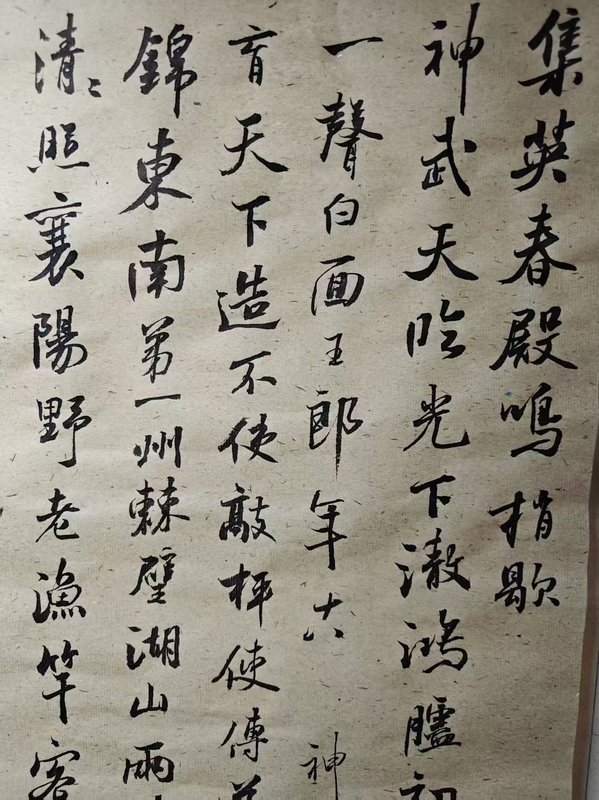 集英春殿鳴捎歇
神武天臨光下澈鴻臚初
一聲白面王郎年十八神
育天下造不使敲枰使傳
錦東南第一州棘璧湖山兩
清〻照襄陽野老漁竿客